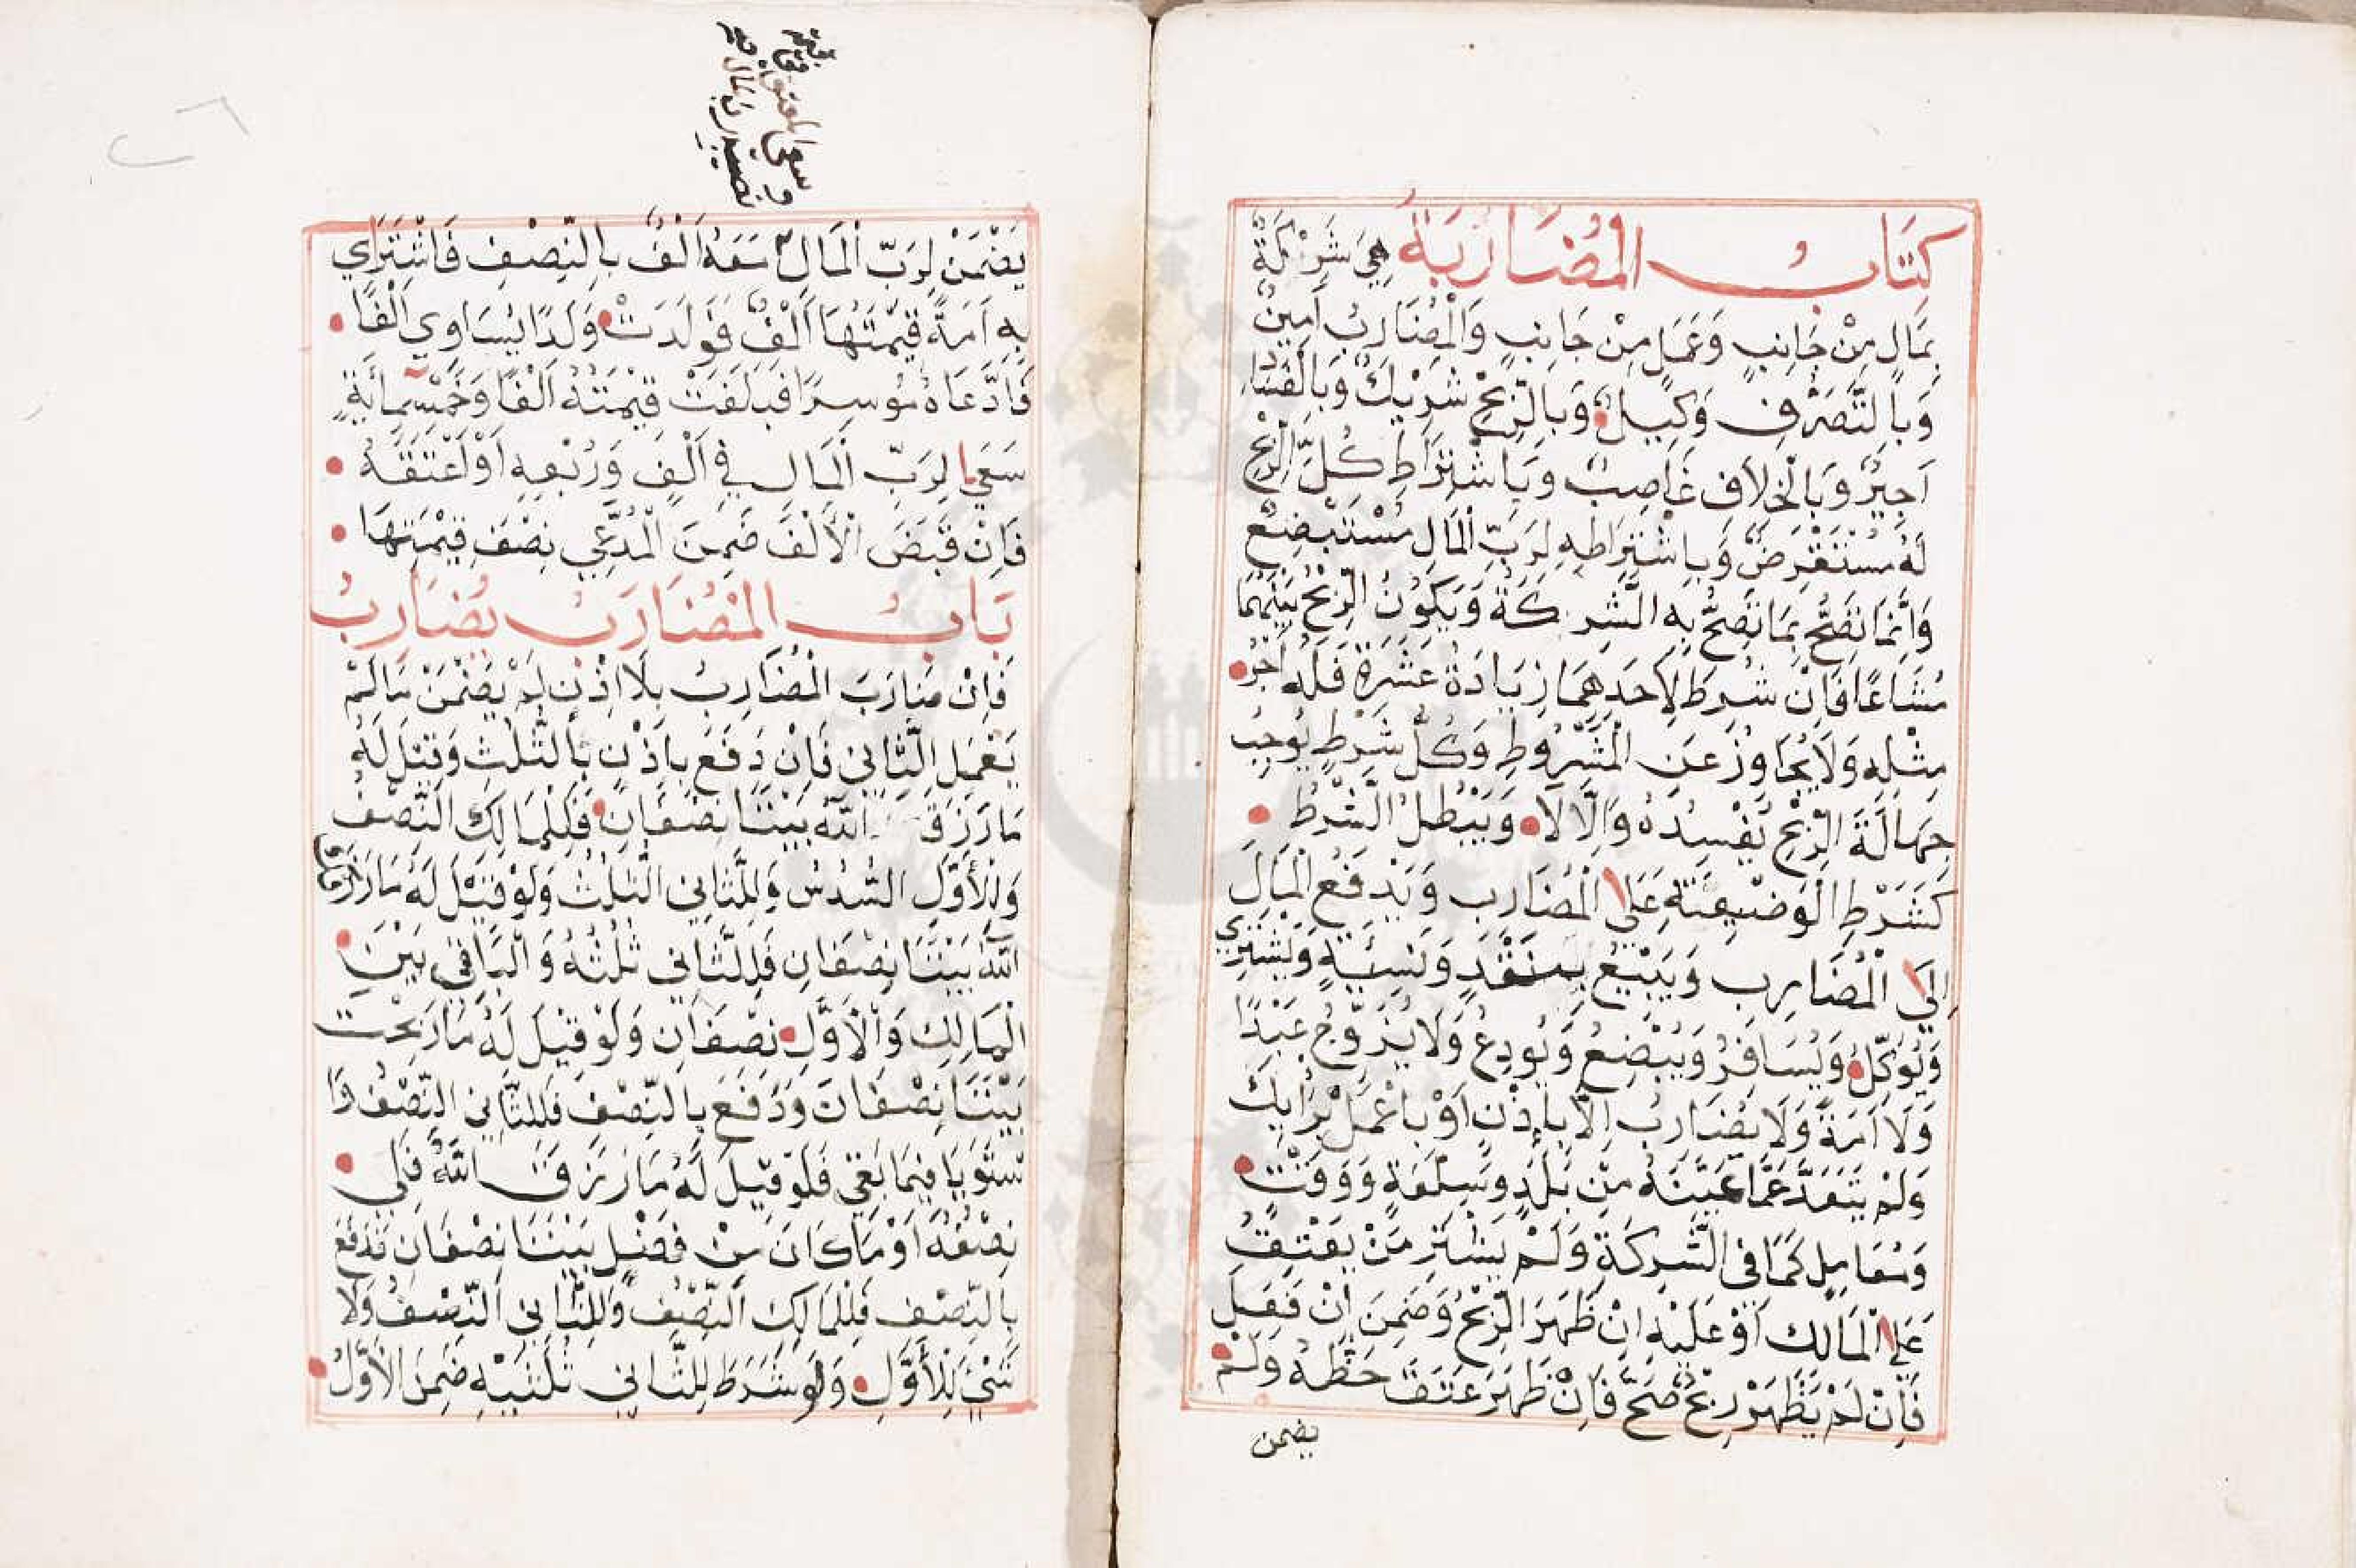 كِتَابُ الْمُضَارَبَةِ هِيَ شَرِكَةٌ
بِمَالٍ مِنْ جَانِبٍ وَعَمَلٍ مِنْ جَانِبٍ وَالْمُضَارِبُ اَمِينٌ
وَبِالتَّصَرُّفِ وَكِيلٌ وَبِالرِّبْحِ شَرِيْكٌ وَبِالْفَسَادِ
اَجِيْرٌ وَبِالْخِلَافِ غَاصِبٌ وَبِاشْتِرَاطِ كُلِّ الرِّبْحِ
لَهُ مُسْتَقْرِضٌ وَبِاشْتِرَاطِهِ لِرَبِّ الْمَالِ مُسْتَبْضِعٌ
وَاِنَّمَا تَصِحُّ بِمَا تَصِحُّ بِهِ الشَّرِكَةُ وَيَكُوْنُ الرِّبْحُ بَيْنَهُمَا
مُشَاعًا فَاِنْ شُرِطَ لِاَحَدِهِمَا زِيَادَةُ عَشَرَةٍ فَلَهُ اَجْرُ
مِثْلِهِ وَلَا يُجَاوُزُ عَنِ الْمَشْرُوطِ وَكُلُّ شَرْطٍ يُوجِبُ
جَهَالَةَ الرِّبْحِ يُفْسِدُهُ وَاِلَّا لَا وَيَبْطُلُ الشَّرْطُ
كَشَرْطِ الْوَضِيْعَةِ عَلَى الْمُضَارِبِ وَيَدْفَعُ الْمَالَ
اِلَى الْمُضَارِبِ وَيَبِيْعُ بِنَقْدٍ وَنَسِيْئَةٍ وَيَشْتَرِي
وَيُوَكِّلُ وَيُسَافِرُ وَيُبْضِعُ وَيُودِعُ وَلَا يُزَوِّجُ عَبْدًا
وَلَا اَمَةً وَلَا يُضَارِبُ اِلَّا بِاِذْنٍ اَوْ بِاعْمَلْ بِرَأْيِكَ
وَلَمْ يَتَعَدَّ عَمَّا عَيَّنَهُ مِنْ بَلَدٍ وَسِلْعَةٍ وَوَقْتٍ
وَمُعَامِلٍ كَمَا فِي الشَّرِكَةِ وَلَمْ يَشْتَرِ مَنْ يَعْتِقُ
عَلَى الْمَالِكِ اَوْ عَلَيْهِ اِنْ ظَهَرَ الرِّبْحُ وَضَمِنَ اِنْ فَعَلَ
فَاِنْ لَمْ يَظْهَرْ رِبْحٌ صَحَّ فَاِنْ ظَهَرَ عَتَقَ حَظُّهُ وَلَمْ
يضمن
يَضْمَنْ لِرَبِّ الْمَالِ مَعَهُ اَلْفٌ بِالنِّصْفِ فَاشْتَرَاي
بِهِ اَمَةً قِيْمَتُهَا اَلْفٌ فَوَلَدَتْ وَلَدًا يُسَاوِي اَلْفًا
فَادَّعَاهُ مُوسِرًا فَبَلَغَتْ قِيْمَتُهُ اَلْفًا وَخَمْسَمِائَةٍ
سَعَى لِرَبِّ الْمَالِ فِي اَلْفٍ وَرُبْعِهِ اَوْ اَعْتَقَهُ
فَاِنْ قَبَضَ الْاَلْفَ ضَمِنَ الْمُدَّعِي نِصْفَ قِيْمَتِهَا
بَابُ الْمُضَارِبِ يُضَارِبُ
فَاِنْ ضَارَبَ الْمُضَارِبُ بِلَا اِذْنٍ لَمْ يَضْمَنْ مَا لَمْ
يَعْمَلِ الثَّانِي فَاِنْ دَفَعَ بِاِذْنٍ بِالثُّلُثِ وَقِيْلَ لَهُ
مَا رَزَقَ اللّٰهُ بَيْنَنَا نِصْفَانِ فَلِلْمَالِكِ النِّصْفُ
وَلِلْاَوَّلِ السُّدُسُ وَلِلثَّانِي الثُّلُثُ وَلَوْ قِيْلَ لَهُ مَا رَزَقَكَ
اللّٰهُ بَيْنَنَا نِصْفَانِ فَلِلثَّانِي ثُلُثُهُ وَالْبَاقِي بَيْنَ
الْمَالِكِ وَالْاَوَّلِ نِصْفَانِ وَلَوْ قِيْلَ لَهُ مَا رَبِحْتَ
بَيْنَنَا نِصْفَانَ وَدَفَعَ بِالنِّصْفِ فَلِلثَّانِي النِّصْفُ وَا
سْتَوَيَا فِيمَا بَقِيَ فَلَوْ قِيْلَ لَهُ مَا رَزَقَ اللّٰهُ فَلِي
نِصْفُهُ اَوْ مَا كَانَ مِنْ فَضْلٍ بَيْنَنَا نِصْفَانِ فَدَفَعَ
بِالنِّصْفِ فَلِلْمَالِكِ النِّصْفُ وَلِلثَّانِي النِّصْفُ وَلَا
شَيْئَ لِلْاَوَّلِ وَلَوْ شَرَطَ لِلثَّانِي ثُلُثَيْهِ ضَمِنَ الْاَوَّلُ